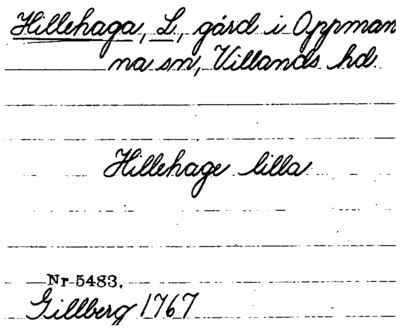 Hillehaga, L., gård i Oppman
na sn, Villands hd.
Hillehage lilla
Nr 5483.
Gillberg 1767